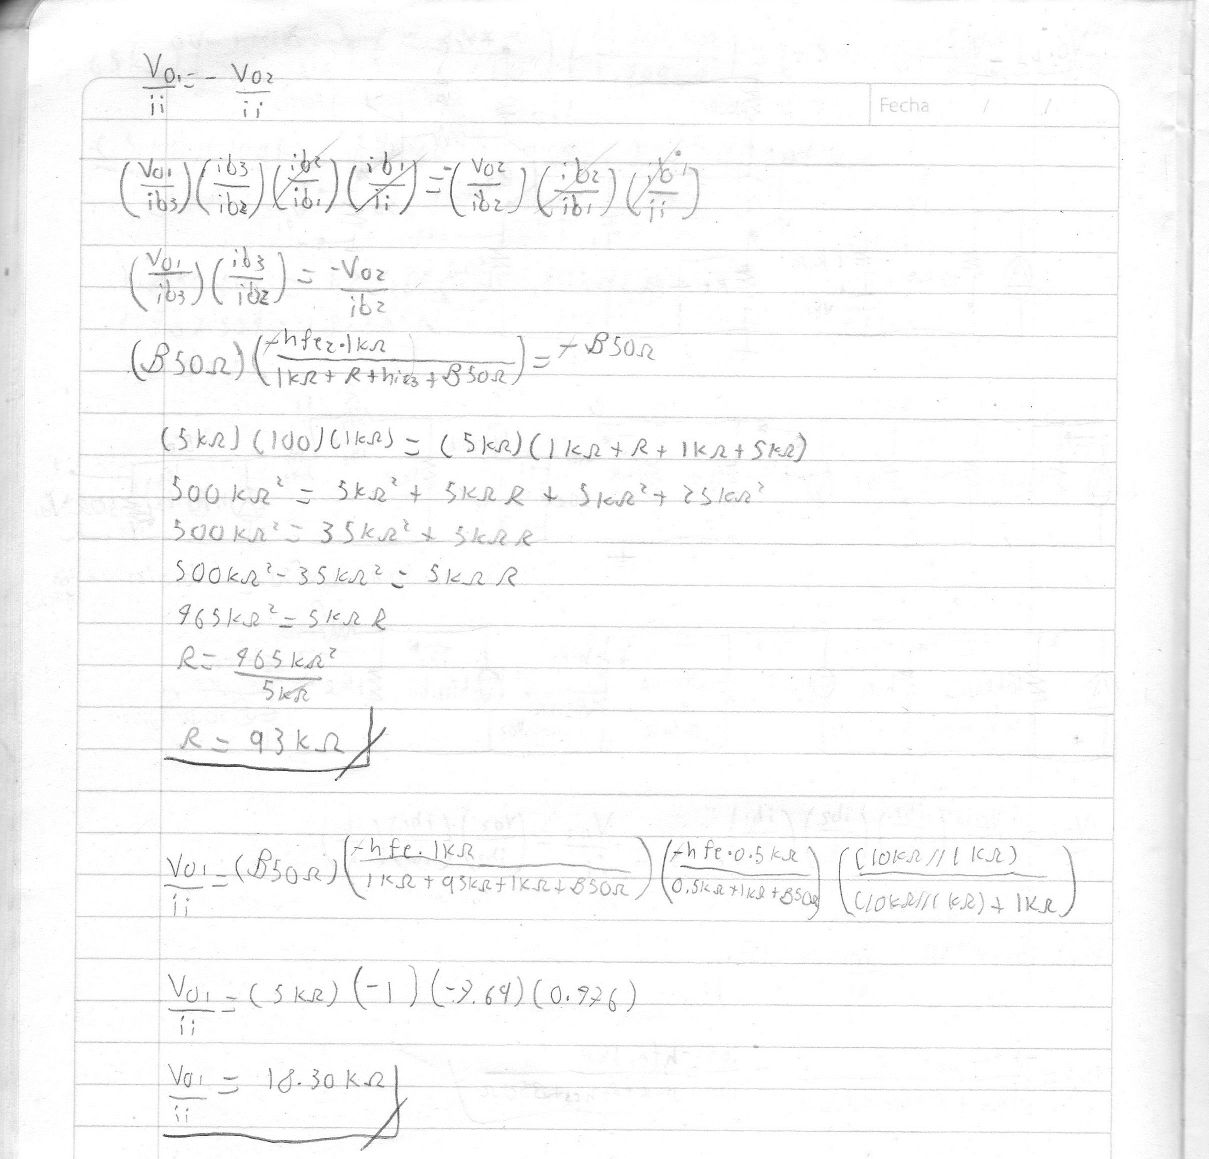 Fecha / /
Vo1/ii = - Vo2/ii
(Vo1/ib3)(ib3/ib2)(ib2/ib1)(ib1/ii) = -(Vo2/ib2)(ib2/ib1)(ib1/ii)
(Vo1/ib3)(ib3/ib2) = -Vo2/ib2
(β50Ω)(-hfe2·1kΩ / 1kΩ + R + hie3 + β50Ω) = -β50Ω
(5kΩ)(100)(1kΩ) = (5kΩ)(1kΩ + R + 1kΩ + 5kΩ)
500kΩ² = 5kΩ² + 5kΩ R + 5kΩ² + 25kΩ²
500kΩ² = 35kΩ² + 5kΩ R
500kΩ² - 35kΩ² = 5kΩ R
465kΩ² = 5kΩ R
R = 465kΩ² / 5kΩ
R = 93kΩ
Vo1/ii = (β50Ω)(-hfe·1kΩ / 1kΩ + 93kΩ + 1kΩ + β50Ω)(-hfe·0.5kΩ / 0.5kΩ + 1kΩ + β50Ω)((10kΩ//1kΩ) / (10kΩ//1kΩ) + 1kΩ)
Vo1/ii = (5kΩ)(-1)(-7.69)(0.476)
Vo1/ii = 18.30kΩ